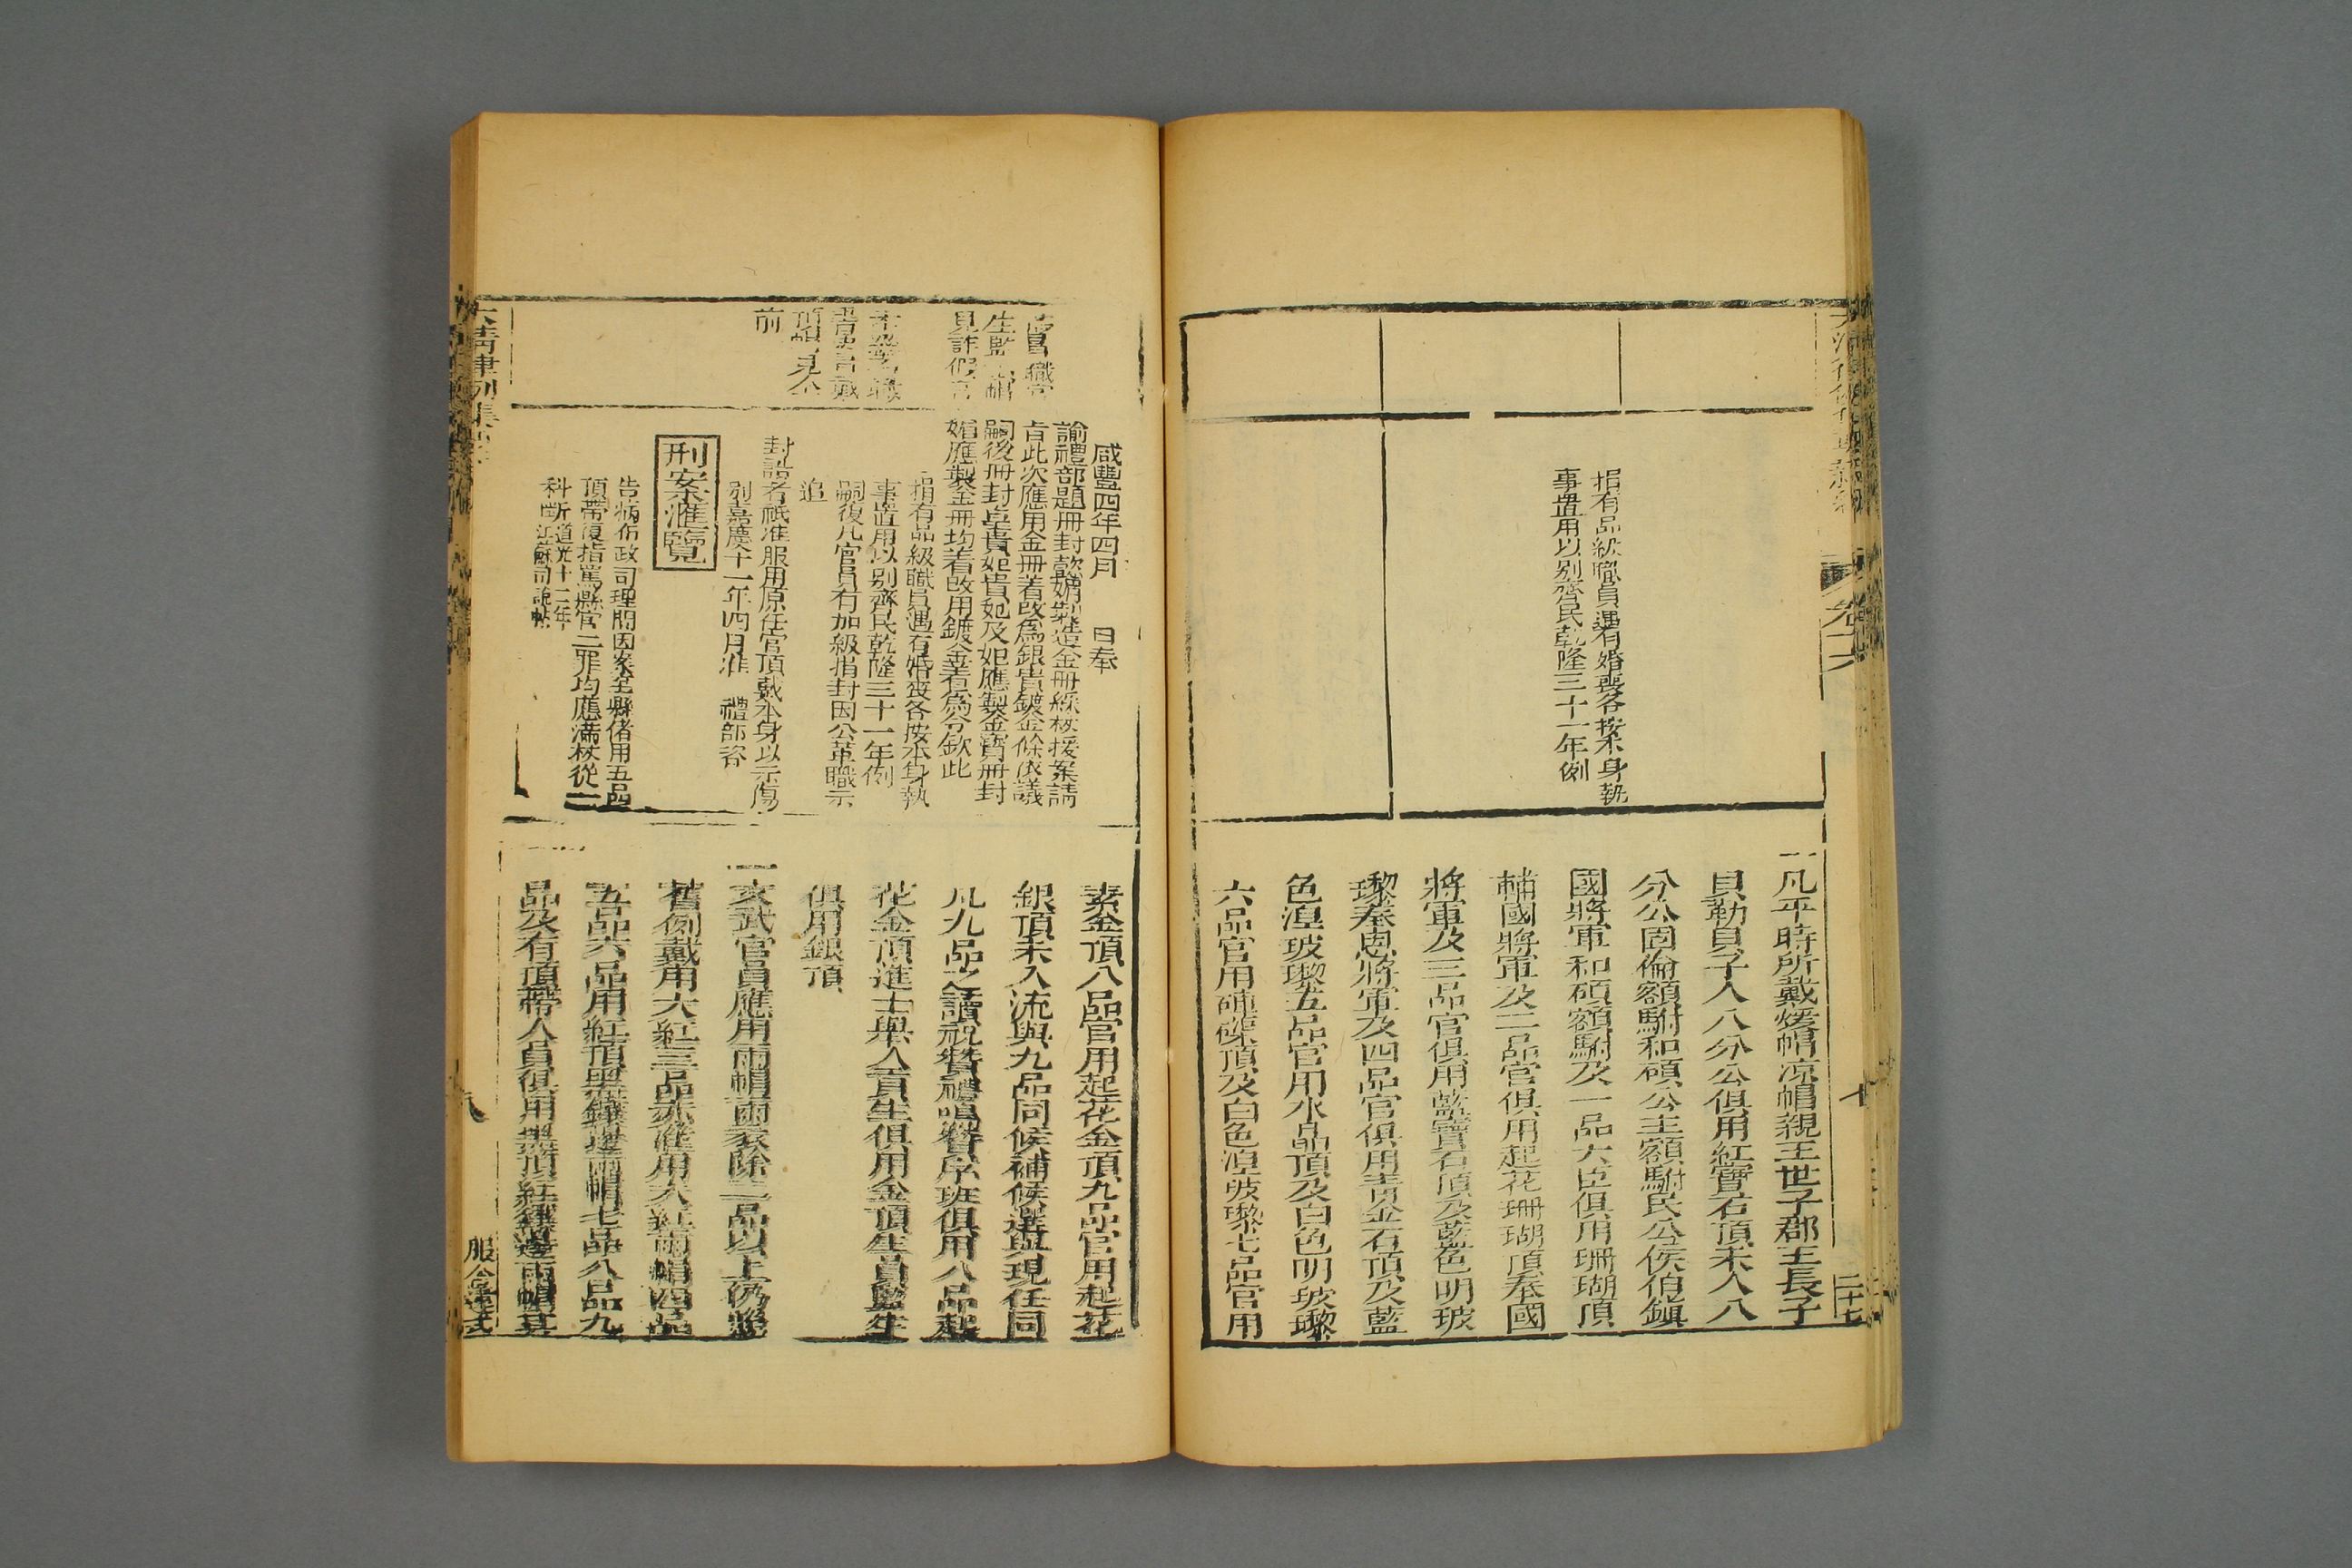 捐有品級職員遇有婚喪各按本身執
事置用以别齊民乾隆三十一年例
一凡平時所戴煖帽凉帽親王世子郡王長子
貝勒貝子入八分公俱用紅寶石頂未入八
分公固倫額駙和碩公主額駙民公侯伯鎮
國將軍和碩額駙及一品大臣俱用珊瑚頂
輔國將軍及二品官俱用起花珊瑚頂奉國
將軍及三品官俱用藍寶石頂及藍色明玻
瓈奉恩將軍及四品官俱用青金石頂及藍
色湼玻瓈五品官用水晶頂及白色明玻瓈
六品官用硨磲頂及白色湼玻瓈七品官用
職官
生監
見詐假官
頂帽
前
咸豐四年四月 日奉
諭禮部題冊封懿嬪製造金冊綵杖援案請
旨此次應用金冊着改爲銀質鍍金餘依議
嗣後冊封皇貴妃貴妃及妃應製金寶冊封
嬪應製金冊均着改用鍍金着爲令欽此
捐有品級職員遇有婚喪各按本身執
事置用以别齊民乾隆三十一年例
嗣後凡官員有加級捐封因公革職未
追
封誥者祇准服用原任官頂戴本身以示
别嘉慶十一年四月准 禮部咨
刑案滙覽
告病布政司理問因案至縣偖用五品
頂帶復指罵縣官二罪均應滿杖從一
科斷道光十二年
江蘇司說帖
素金頂八品官用起花金頂九品官用起花
銀頂未入流與九品同候補候選與現任同
凡九品之讀祝贊禮鳴贊序班俱用八品起
花金頂進士舉人貢生俱用金頂生員監生
俱用銀頂
一文武官員應用雨帽雨衣除二品以上仍照
舊例戴用大紅三品亦准用大紅雨帽四品
五品六品用紅頂黑鑲邊雨帽七品八品九
品及有頂帶人員俱用黑頂紅鑲邊雨帽其
大清律例
八
服舍違式